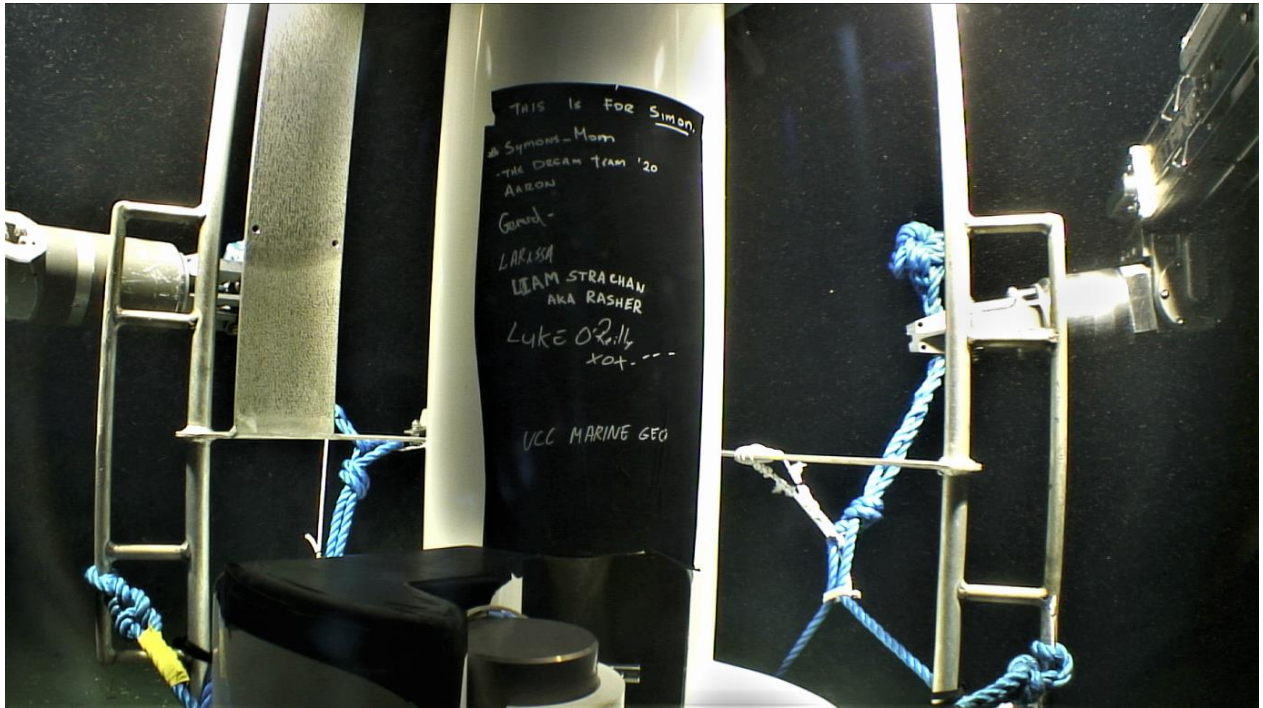 THIS IS FOR Simon.
Symons_Mom
-THE DREAM TEAM '20
AARON
Gerard-
LARISSA
LIAM STRACHAN
AKA RASHER
LUKE O'Reilly
xox----
UCC MARINE GEO